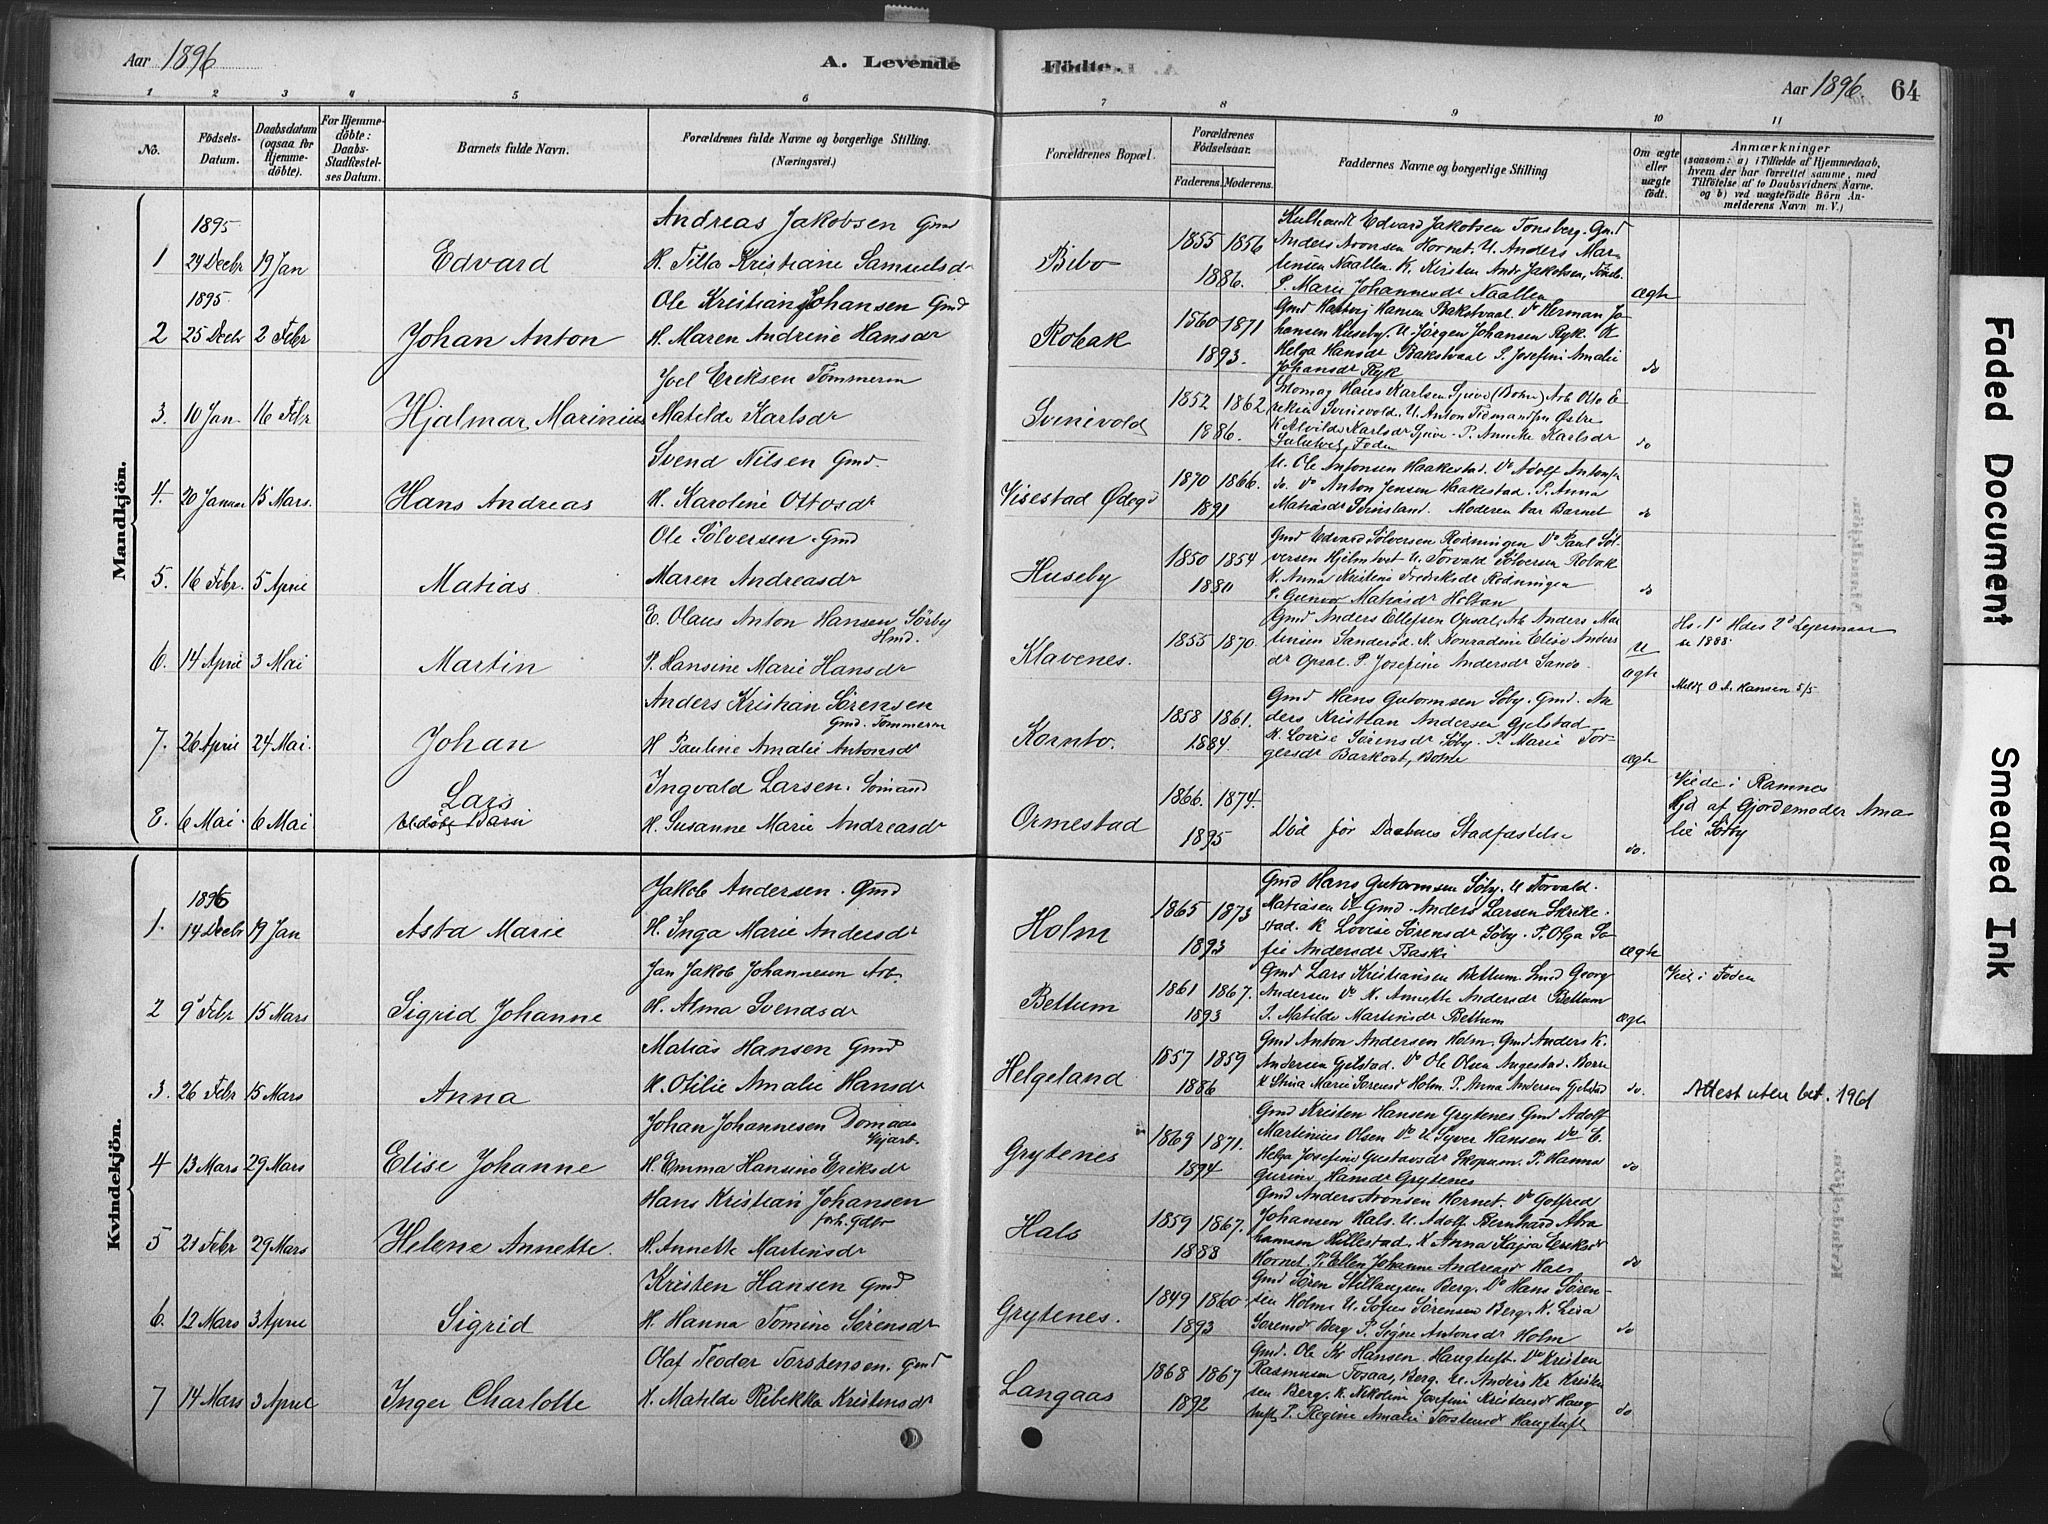 Aar 1896
A. Levende
Födte.
Aar 1896.
64
1 2 3 4 5 6 7 8 9 10 11
No.
Födsels-
Datum.
Daabsdatum
(ogsaa for
Hjemme-
döbte).
For Hjemme-
döbte:
Daabs-
Stadfæstel-
ses Datum.
Barnets fulde Navn.
Forældrenes fulde Navne og borgerlige Stilling.
(Næringsvei.)
Forældrenes Bopæl.
Forældrenes
Födselsaar.
Faderens. Moderens.
Faddernes Navne og borgerlige Stilling
Om ægte
eller
uægte
födt.
Anmærkninger
(saasom: a) i Tilfælde af Hjemmedaab,
hvem der har forrettet samme, med
Tilföielse af to Daabsvidners Navne.
og b) ved uægtefödte Börn An-
melderens Navn m. V.)
Mandkjön.
1895
1 24 Decbr 19 Jan
Edvard
Andreas Jakobsen Gmd
H. Tilla Kristiane Samuelsdr
Bibo
1855 1856
1886.
Edvard Jakobsen Tonsberg. Gmd
Anders Aronsen Hornet. U. Anders Mar-
tensen Naallen. K. Kirsten Andr Jakobsen,
P. Marie Johannesdr Naallen
ægte
1895
2 25 Decbr 2 Febr
Johan Anton
Ole Kristian Johansen Gmd
H. Maren Andrine Hansdr
Robak
1860 1871
1893.
Hansen Bakstvaal Do Herman Jo-
hansen Huseby. U. Jørgen Johansen Ryk. K
Helga Hansdr Bakstvaal P. Josefine Amalie
Johansdr Ryk
do
3. 10 Jan 16 Febr
Hjalmar Marinius
Joel Eriksen Tømmerm
Matilde Karlsdr
Svinevold
1852 1862
1886.
Hans Karlsen Sjuve (Botne) Arb Otto E-
riksen Svinevold. U. Anton Tidmandsen Østre
K Alvilde Karlsdr Sjuve. P. Annette Karlsdr
Foden
do
4. 20 Januar 15 Mars.
Hans Andreas
Svend Nilsen Gmd.
H. Karoline Ottosdr
Visestad Ødegd
1870 1866.
1891
U. Ole Antonsen Haakestad. Do Adolf Antonsen
do. Do Anton Jensen Haakestad. P. Anna
Matiasdr Svinsland. Moderen bar Barnet
do
5. 16 Febr. 5 April
Matias
Ole Sølversen. Gmd
Maren Andreasdr
Huseby
1850 1854
1880
Gmd Edvard Sølversen Rodningen Do Paul Søl-
versen Hjelmtvet U. Torvald Sølversen Robak
K. Anna Kristine Fredriksdr Rodningen
P. Gunvor Matiasdr Holtan
do
6. 14 April 3 Mai
Martin
E. Olaus Anton Hansen Sörby
Hmd.
P. Hansine Marie Hansdr
Klavenes.
1855 1870.
Gmd Anders Ellefsen Opsal. Arb Anders Mar-
tinsen Sanderød. K Konradine Elise Anders
dr Opsal. P. Josefine Andersdr Sande.
u
ægte
1888
Meldg O A. Hansen 5/5
7. 26 April 24 Mai.
Johan
Anders Kristian Sörensen
Gmd. Tømmerm
H Pauline Amalie Antonsdr
Kornbo.
1858 1861.
1884
Gmd Hans Gutormsen Søby. Gmd. An-
ders Kristian Andersen Gjelstad
K. Lovise Sørensdr Søby. P. Marie Tor-
gersdr Barkost, Botne
ægte
8. 6 Mai. 6 Mai
Lars
Udöbt Barn
Ingvald Larsen. Sömand
H. Susanne Marie Andreasdr
Ormestad
1866. 1874.
1895
Död før Daabens Stadfæstelse
do.
Viede i Ramnes
Hjd af Gjordemoder Ama-
lie Søby
Kvindekjön.
1896
1. 14 Decbr 19 Jan
Asta Marie
Jakob Andersen. Gmd
H. Inga Marie Andersdr
Holm
1865 1873
1893
Gmd Hans Gutormsen Søby. U Torvald
Matiasen Do Gmd. Anders Larsen Skrike-
stad. K Lovise Sørensdr Søby. P. Olga So-
fie Andersdr Baski
ægte
2 9 Febr 15 Mars
Sigrid Johanne
Jan Jakob Johannesen Arb.
H. Alma Svendsdr
Bettum
1861 1867.
1893
Gmd Lars Kristiansen Bettum. Gmd Georg
Andersen Do K. Annette Andersdr Bettum
P. Matilde Martinsdr Bettum
ægte
Viet i Foden
3. 26 Febr 15 Mars
Anna
Matias Hansen Gmd
H. Otilie Amalie Hansdr
Helgeland
1857 1859
1886
Gmd Anton Andersen Holm. Gmd Anders K.
Andersen Gjelstad. Do Ole Olsen Angestad. Borre
K Stina Marie Sorensd Holm. P. Anna Andersen Gjelstad
do.
Attest uten bet. 1961
4 13 Mars 29 Mars
Elise Johanne
Johan Johannesen Domaas
Vejarb.
H. Emma Hansine Eriksdr
Grytenes
1869 1871.
1894
Gmd Kristen Hansen Grytenes Gmd Adolf
Martinius Olsen Do U Syver Hansen Do E.
Helga Josefine Gustavsdr Skopum. P. Hanna
Gurine Hansdr Grytenes
do
5 21 Febr 29 Mars
Helene Annette.
Hans Kristian Johansen
forh. Gdbr
H. Annette Martinsdr
Hals
1859 1867.
1888
Gmd Anders Aronsen Hornet. Do Gotfred
Johansen Hals. U. Adolf Bernhard Abra
hamsen Hillestad. K Anna Kajsa Eriksdr
Hornet. P. Ellen Johanne Andreasd Hals
do
6. 12 Mars 3 April
Sigrid
Kristen Hansen Gmd
H. Hanna Tomine Sørensdr
Grytenes.
1849 1860.
1893
Gmd Sören Berg. Do Hans Sören-
sen Holms U. Sofus Sørensen Berg. K. Lisa
Sorensd Berg P. Signe Antonsdr Holm
do
7 14 Mars 3 April
Inger Charlotte
Olaf Teodor Torstensen. Gmd
H. Matilde Rebekka Kristensdr
Langaas
1868 1867
1892
Gmd. Ole Kr Hansen. Haugtuft. Do Kristen
Rasmusen Fosaas, Berg. U. Anders Kr Kristen
sen Berg. K. Nikoline Josefine Kristensd Haug
tuft P. Regine Amalie Torstensd Haugtuft
do
Faded Document
Smeared Ink